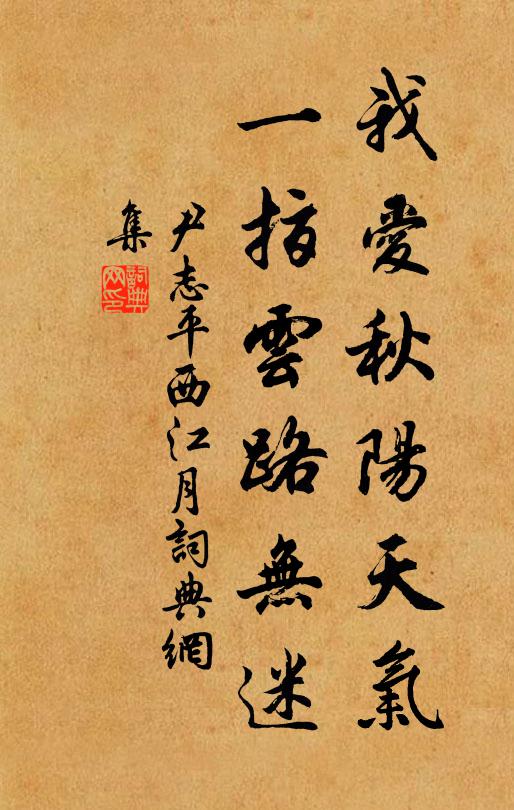 我愛秋陽天氣
一指雲路無迷
尹志平西江月詞典網
集
詞典网印